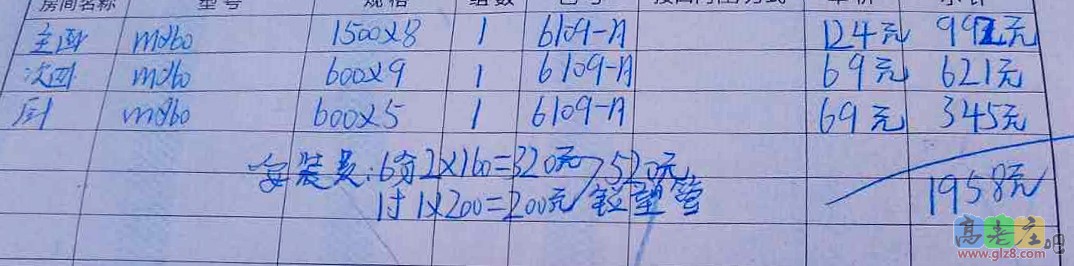 房间名称 型号 规格 组数 色号 接口特殊方式 单价 小计
主卧 m060 1500x8 1 6109-A 124元 992元
次卧 m060 600x9 1 6109-A 69元 621元
厨 m060 600x5 1 6109-A 69元 345元
安装费:6分2x160=320元 >520元
1寸1x200=200元 铝塑管
1958元
高老庄吧
www.glz8.com